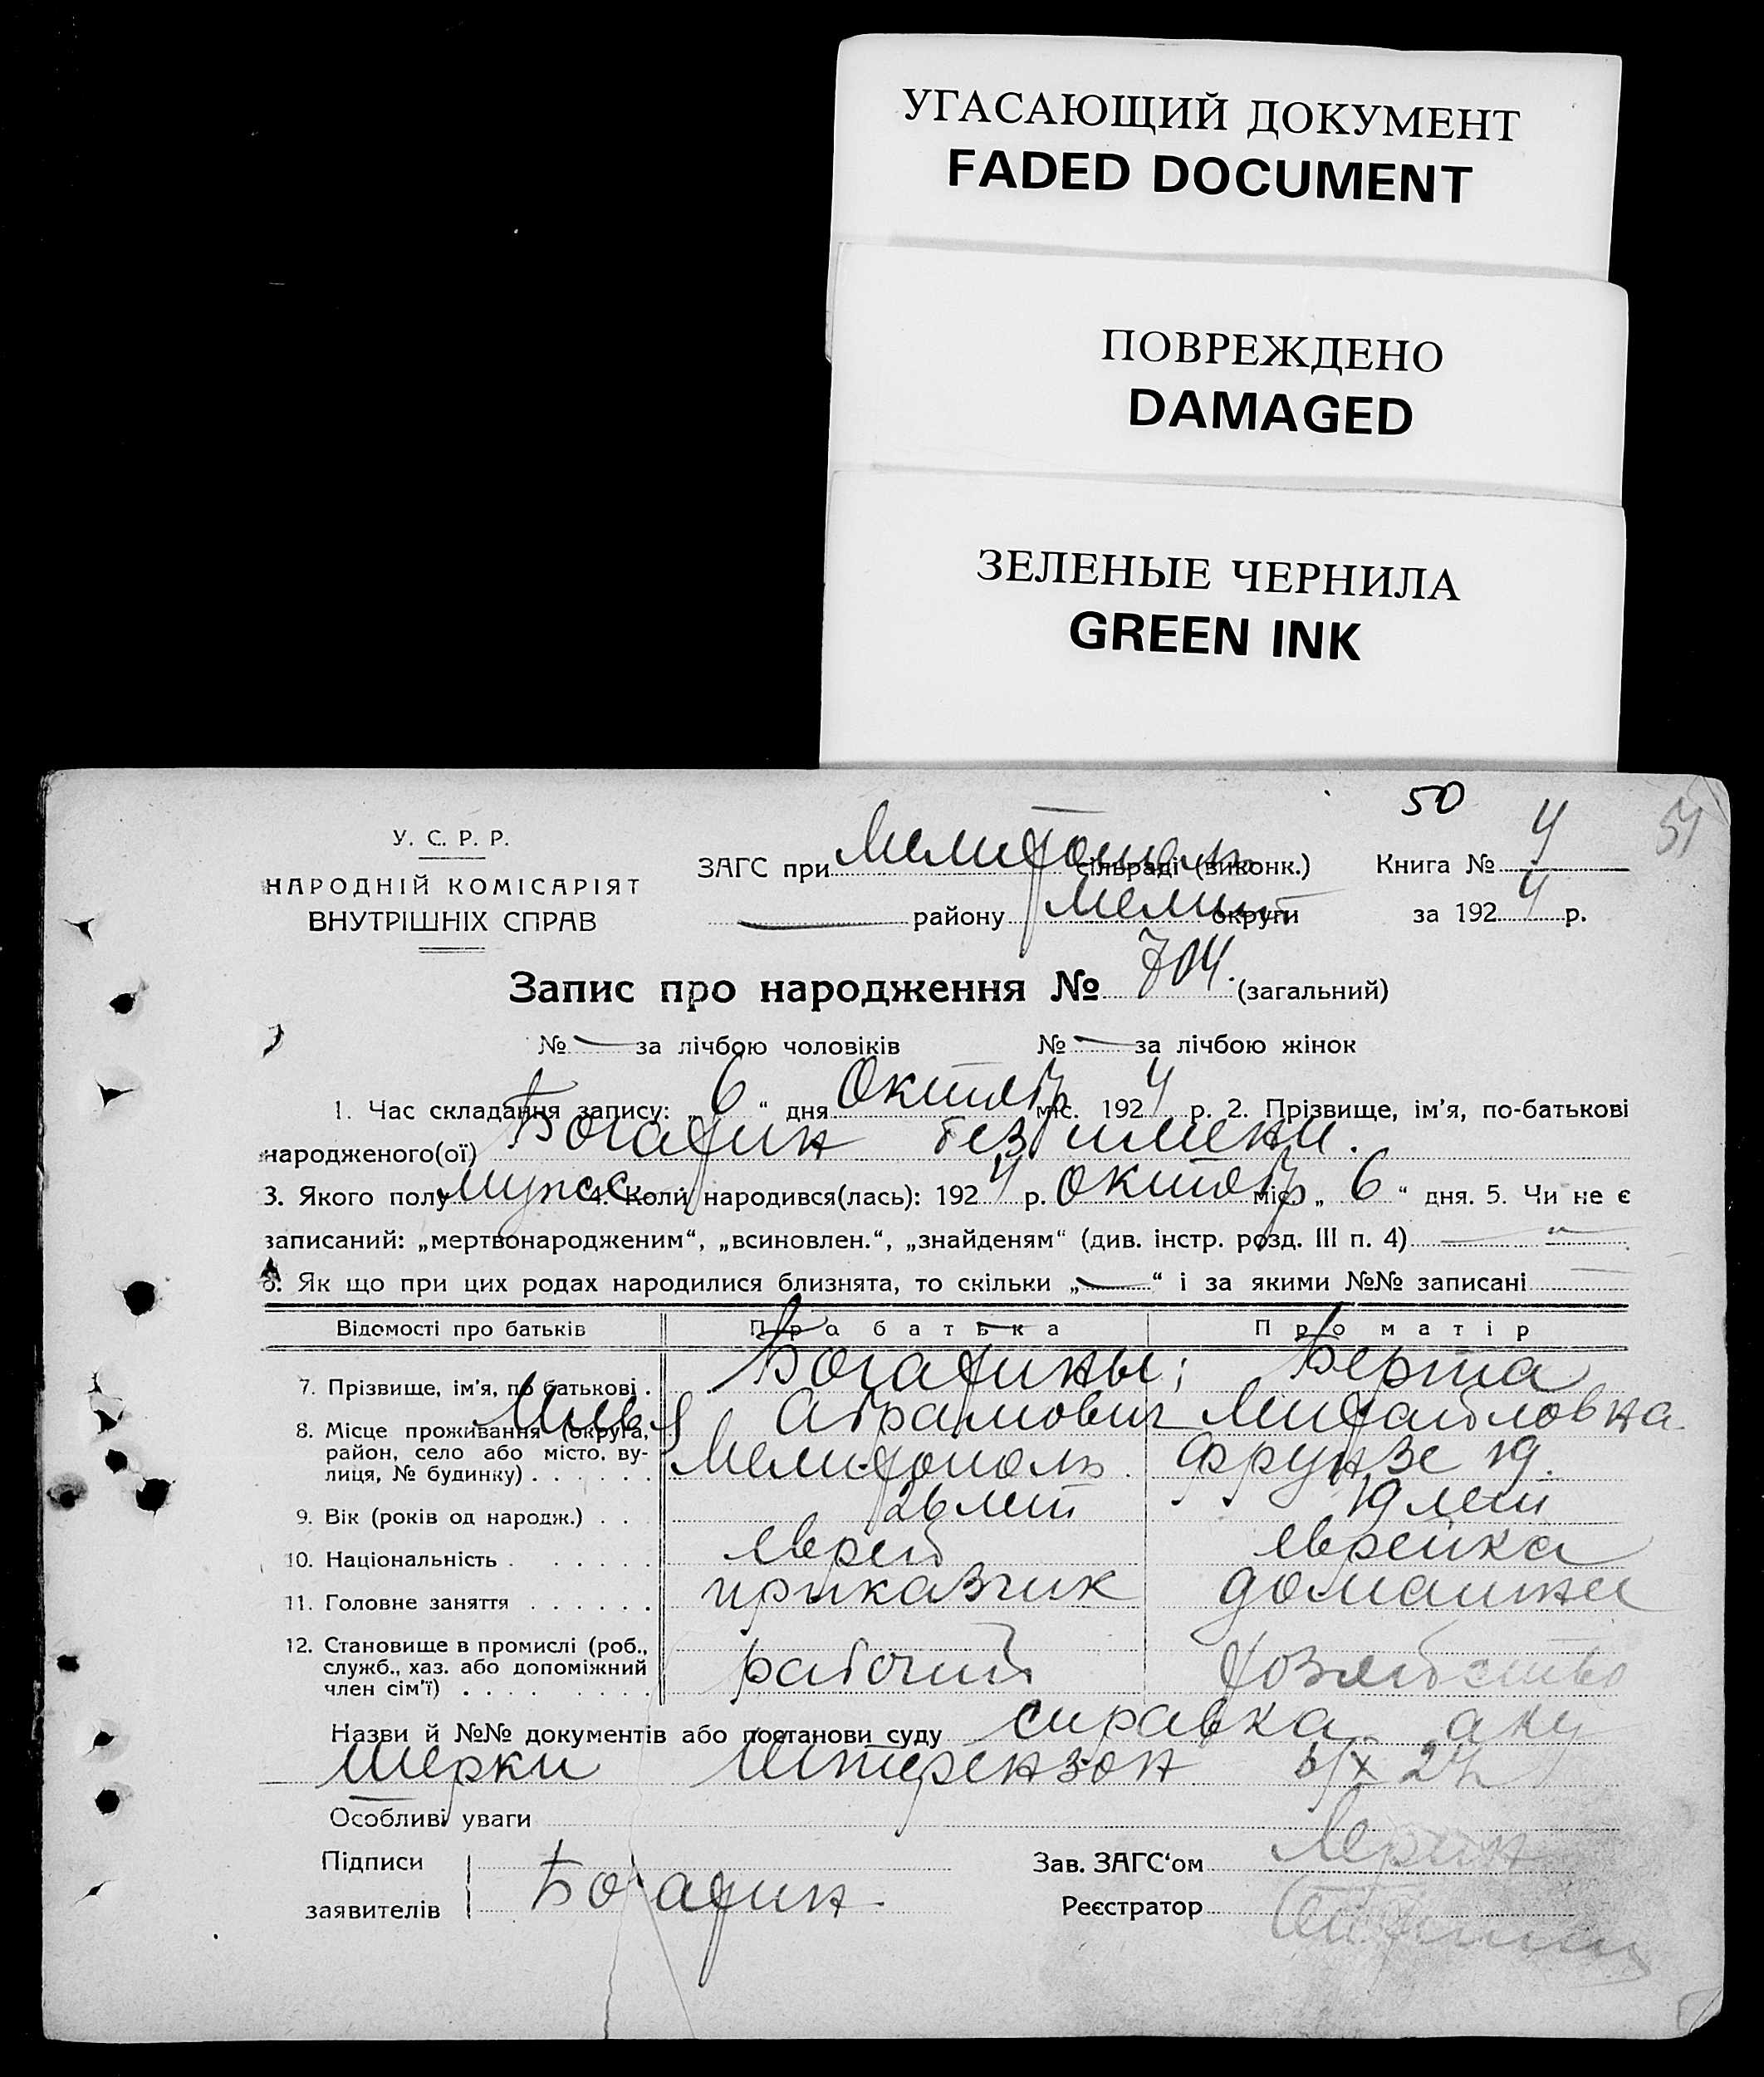 УГАСАЮЩИЙ ДОКУМЕНТ
FADED DOCUMENT
ПОВРЕЖДЕНО
DAMAGED
ЗЕЛЕНЫЕ ЧЕРНИЛА
GREEN INK
50
51
У. С. Р. Р.
НАРОДНІЙ КОМІСАРІЯТ
ВНУТРІШНІХ СПРАВ
ЗАГС при Мелитополь сільраді (виконк.) Книга № 4
району Мелит округи за 1924 р.
Запис про народження № 704. (загальний)
№ — за лічбою чоловіків № — за лічбою жінок
1. Час складання запису: „6“ дня Октябр міс. 1924 р. 2. Прізвище, ім’я, по-батькові
народженого(ої) Богатин без имени.
3. Якого полу мужс 4. Коли народився(лась): 1924 р. Октябр міс. „6“ дня. 5. Чи не є
записаний: „мертвонародженим“, „всиновлен.“, „знайденям“ (див. інстр. розд. III п. 4) — „
6. Як що при цих родах народилися близнята, то скільки „—“ і за якими №№ записані —
Відомості про батьків Про батька Про матір
7. Прізвище, ім’я, по батькові . Богатины; Берта
Абрамович Михайловна
8. Місце проживання (округа,
район, село або місто, ву-
лиця, № будинку) . . . . . . Мелитополь. Фрунзе 19.
9. Вік (років од народж.) . . . 26 лет 19 лет
10. Національність . . . . . . еврей еврейка
11. Головне заняття . . . . . . приказчик домашнее
12. Становище в промислі (роб.,
служб., хаз. або допоміжний
член сім’ї) . . . . . . . . рабочий хозяйство
Назви й №№ документів або постанови суду справка аку
шерки Штерензон 6/X 24
Особливі уваги
Підписи
заявителів Богатин
Зав. ЗАГС‘ом
Реєстратор